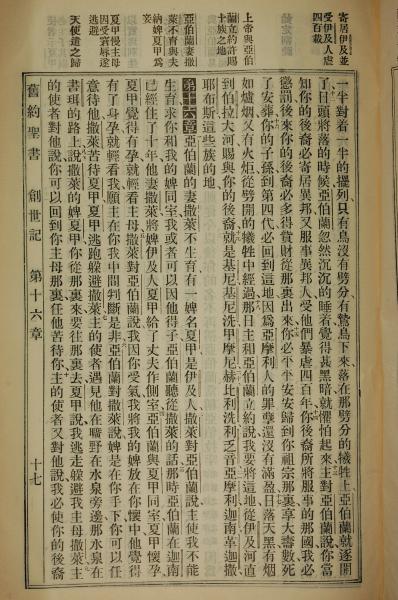 寄居伊及並
受伊及人虐
四百載
上帝與亞伯
蘭立約許賜
十族之地
亞伯蘭妻撒
萊不育與夫
納婢夏甲爲
妾
夏甲慢主母
因受窘辱遂
逃避
天使遣之歸
一半對着一半的擺列只有鳥沒有劈分有鷙鳥下來落在那劈分的犧牲上亞伯蘭就逐開
了日頭將落的時候亞伯蘭忽然沉沉的睡着覺得甚黑暗就懼怕起來主對亞伯蘭說你當
知你的後裔必寄居異邦又服事異邦人受他們暴虐四百年你後裔所將服事的那國我必
懲罰後來你的後裔必多得貲財從那裏出來你必平平安安歸到你祖宗那裏享大壽數死
了安葬你的子孫到第四代必回到這地因爲亞摩利人的罪孽還沒有滿盈日落天黑有烟
如爐烟又有火炬從劈開的犧牲中經過那日主和亞伯蘭立約說我要將這地從伊及河直
到伯拉大河賜與你的後裔就是基尼基尼洗甲摩尼赫比利洗利乏音亞摩利迦南革迦撒
耶布斯這些族的地
第十六章亞伯蘭的妻撒萊不生育有一婢名夏甲是伊及人撒萊對亞伯蘭說主使我不能
生育求你和我的婢同室我或者可以因他得子亞伯蘭聽從撒萊的話那時亞伯蘭在迦南
已經住了十年他妻撒萊將婢伊及人夏甲給了丈夫作側室亞伯蘭與夏甲同室夏甲懷孕
夏甲覺得有孕就輕看主母撒萊對亞伯蘭說我因你受氣我將我的婢放在你懷中他覺得
有了身孕就輕看我願主在你我中間判斷是非亞伯蘭對撒萊說婢是在你手下你可以任
意待他撒萊苦待夏甲夏甲逃跑躲避撒萊主的使者遇見他在曠野在水泉旁邊那水泉在
書珥的路上說撒萊的婢夏甲你從那裏來要往那裏去夏甲說我逃走躲避我主母撒萊主
的使者對他說你可以回到你主母那裏任他苦待你主的使者又對他說我必使你的後裔
舊約聖書 創世記 第十六章 十七